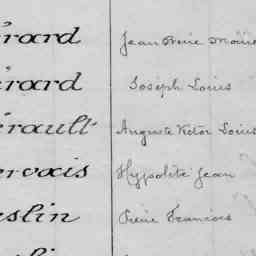 érard Jean Pierre Marie
érard Joseph Louis
érault Auguste Victor Louis
ervais Hypolite Jean
uslin Pierre Francois